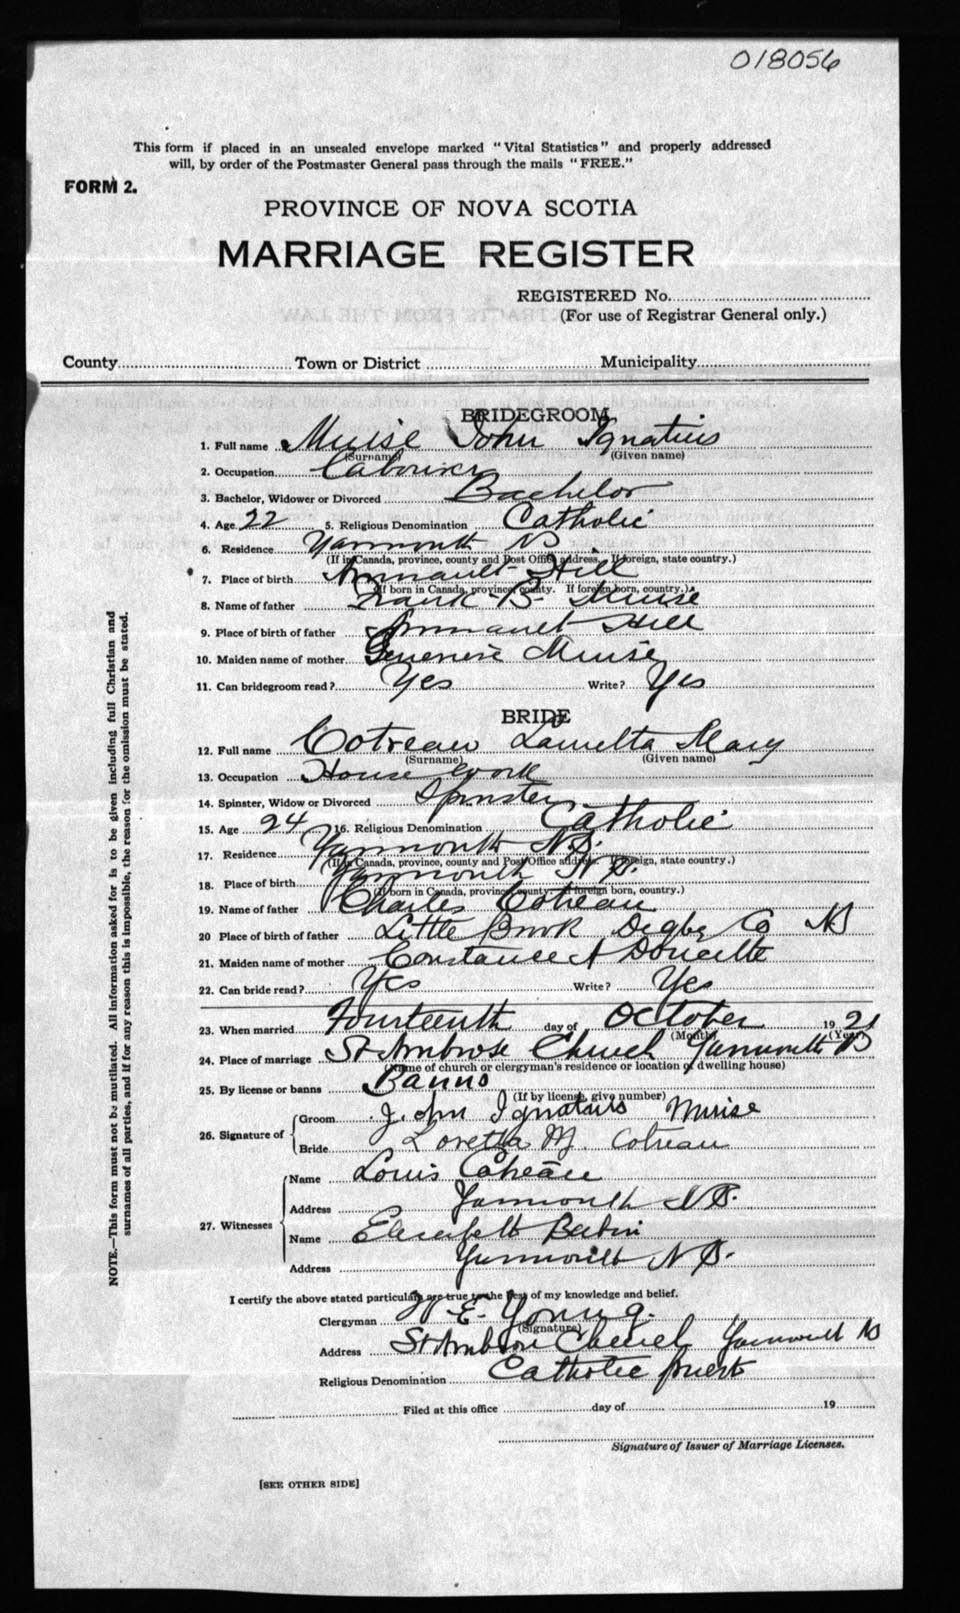 018056
This form if placed in an unsealed envelope marked "Vital Statistics" and properly addressed
will, by order of the Postmaster General pass through the mails "FREE."
FORM 2.
PROVINCE OF NOVA SCOTIA
MARRIAGE REGISTER
REGISTERED No.
(For use of Registrar General only.)
County Town or District Municipality
BRIDEGROOM
1. Full name Muise John Ignatius
(Surname) (Given name)
2. Occupation Labourer
3. Bachelor, Widower or Divorced Bachelor
4. Age 22 5. Religious Denomination Catholic
6. Residence Yarmouth NS
(If in Canada, province, county and Post Office address. If foreign, state country.)
7. Place of birth Amirault Hill
(If born in Canada, province, county. If foreign born, country.)
8. Name of father Frank B. Muise
9. Place of birth of father Amirault Hill
10. Maiden name of mother Muise
11. Can bridegroom read? Yes Write? Yes
BRIDE
12. Full name Cotreau Lauretta Mary
(Surname) (Given name)
13. Occupation House work
14. Spinster, Widow or Divorced Spinster
15. Age 24 16. Religious Denomination Catholic
17. Residence Yarmouth N.S.
(If in Canada, province, county and Post Office address. If foreign, state country.)
18. Place of birth Yarmouth N S.
(If born in Canada, province, county. If foreign born, country.)
19. Name of father Charles Cotreau
20 Place of birth of father Little Brook Digby Co NS
21. Maiden name of mother Constance A Doucette
22. Can bride read? Yes Write? Yes
23. When married Fourteenth day of October 1921
(Month) (Year)
24. Place of marriage St Ambrose Church Yarmouth NS
(Name of church or clergyman's residence or location of dwelling house)
25. By license or banns Banns
(If by license, give number)
26. Signature of Groom John Ignatius Muise
Bride Loretta M. Cotreau
27. Witnesses
Name Louis Cotreau
Address Yarmouth N S.
Name Elizabeth Babin
Address Yarmouth N S.
I certify the above stated particulars are true to the best of my knowledge and belief.
Clergyman E. Young.
(Signature)
Address St Ambrose Church Yarmouth NS
Religious Denomination Catholic priest
Filed at this office day of 19
Signature of Issuer of Marriage Licenses.
[SEE OTHER SIDE]
NOTE.—This form must not be mutilated. All information asked for is to be given including full Christian and
surnames of all parties, and if for any reason this is impossible, the reason for the omission must be stated.